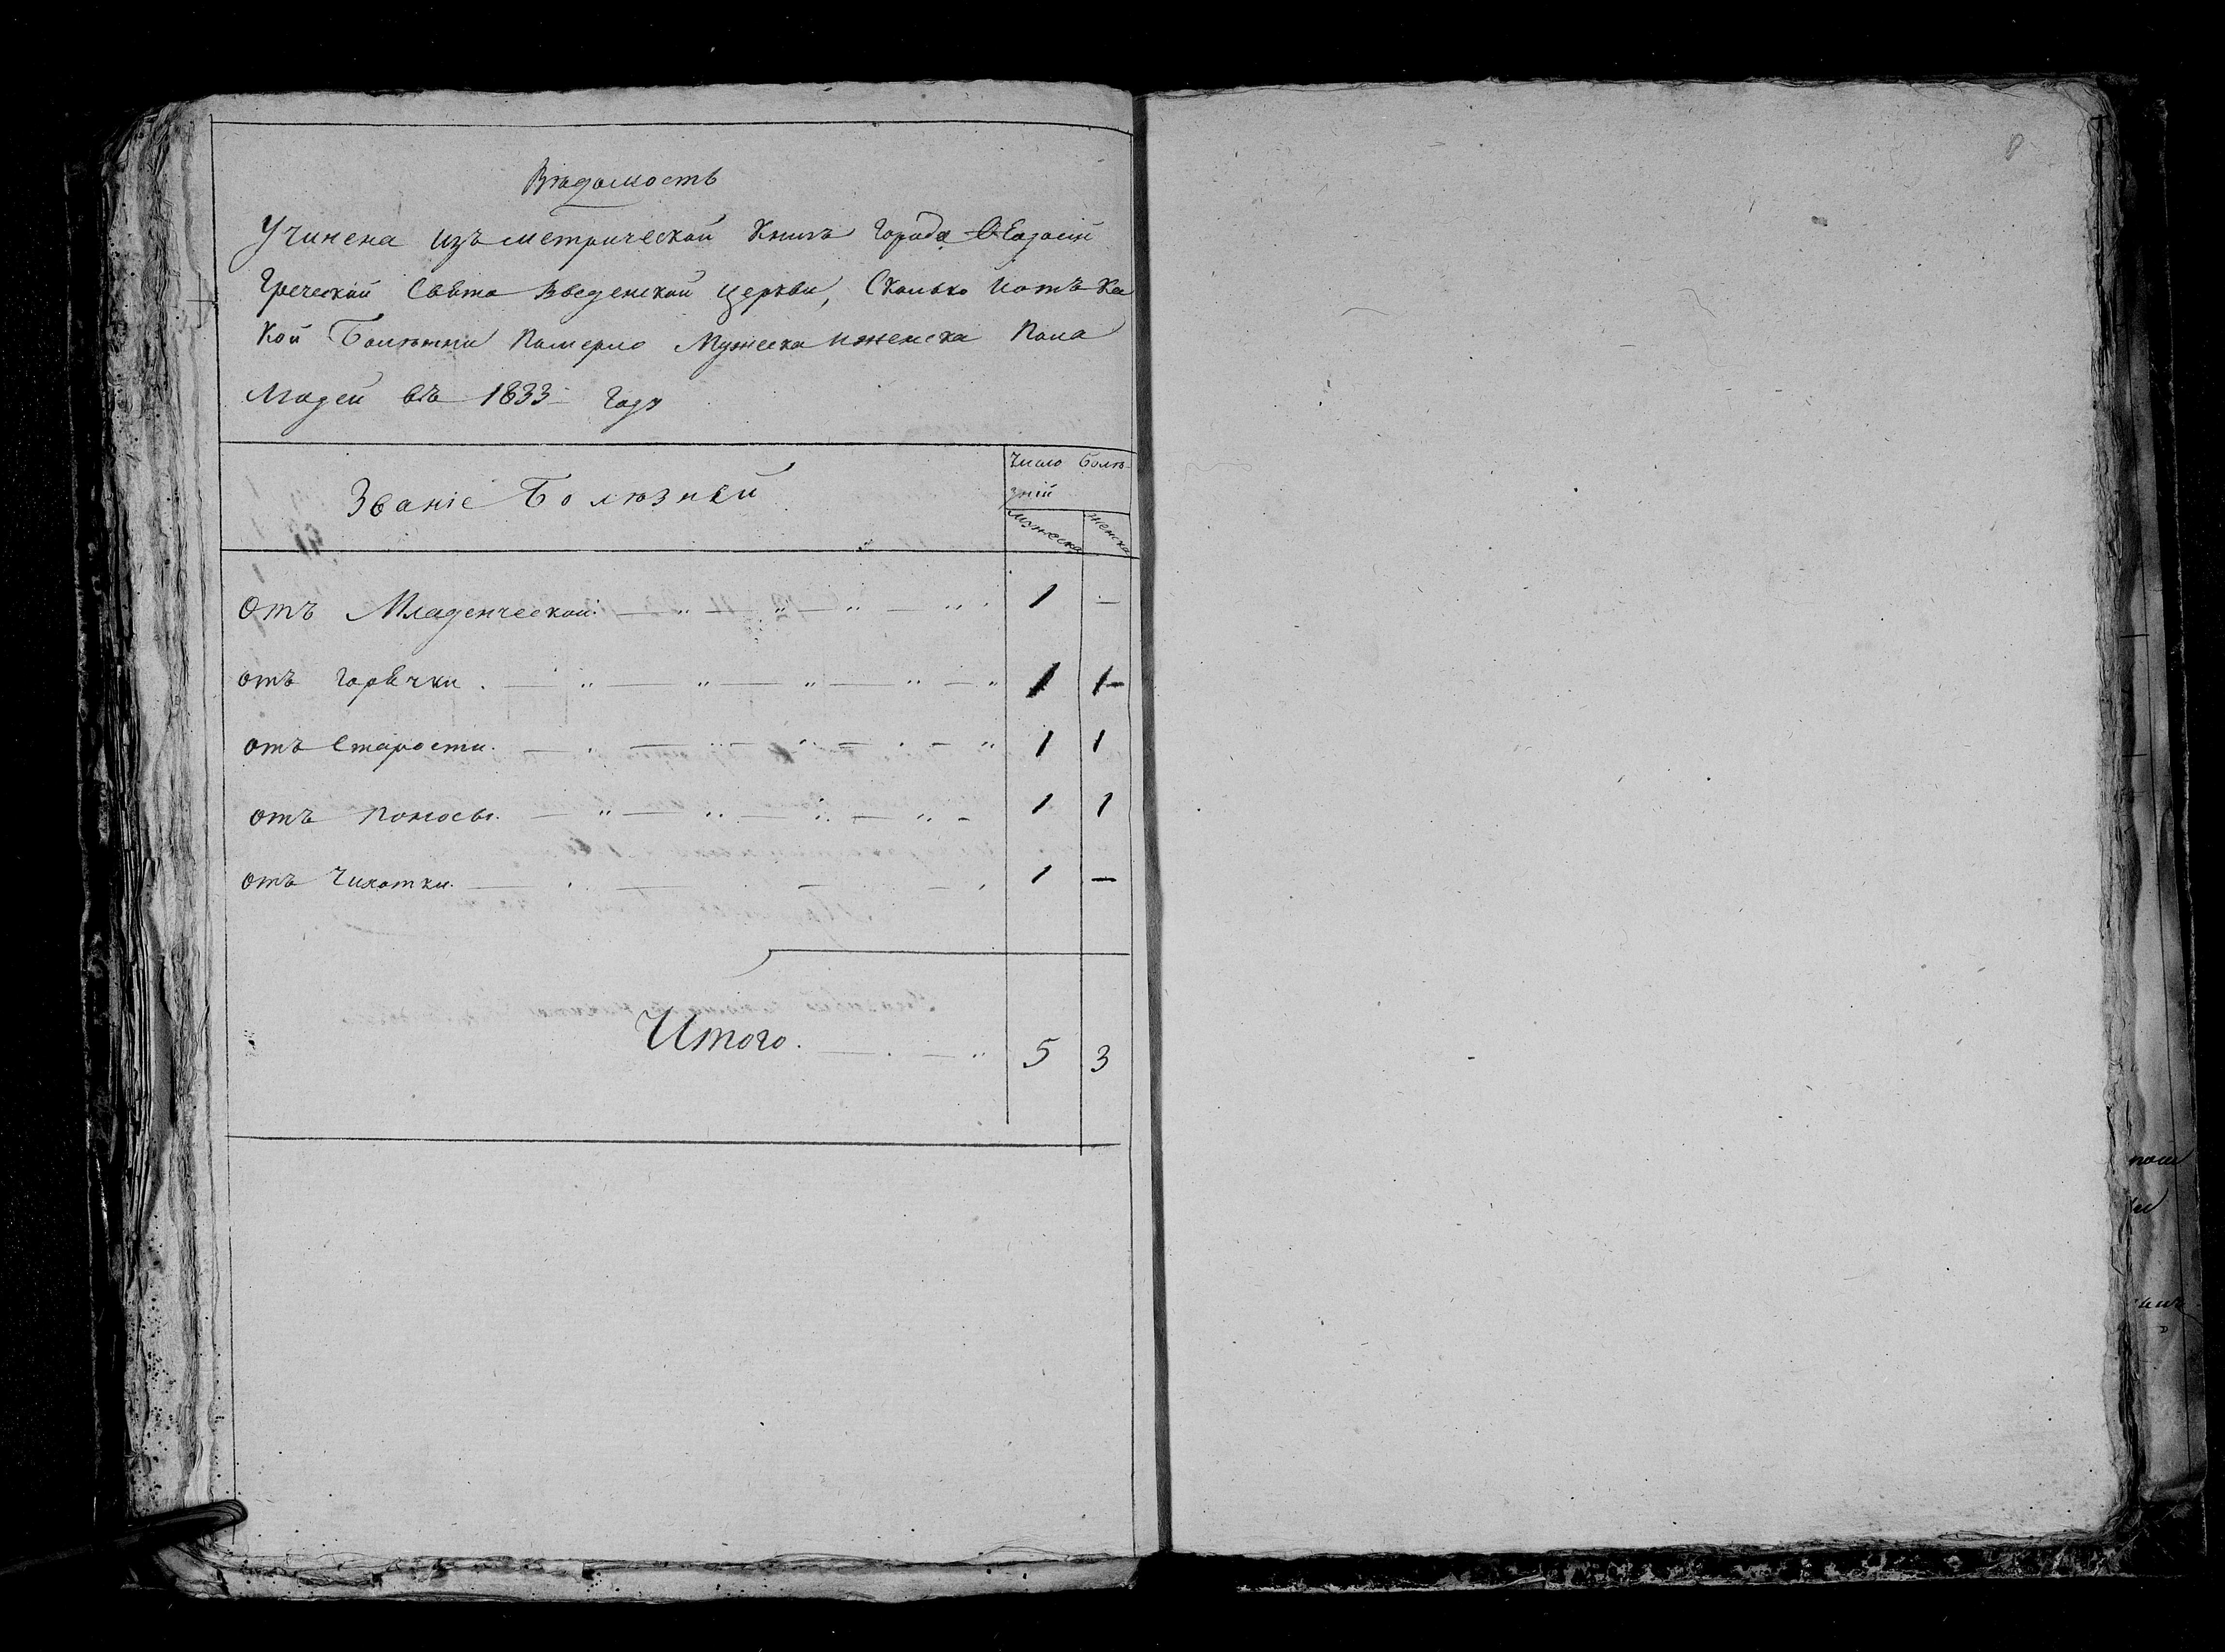 Вѣдомость
Учинена изъ метрической Книгъ города Ѳеодосіи
Греческой Свято Введенской церкви, Сколько иотъ Ка
кой Болѣзни Померло Мужеска иженска Пола
Людей въ 1833 Году
Званіе Болѣзней
Число Болѣ-
зній
Мужеска женска
Отъ Младенческой. 1 —
отъ горячки. 1 1
отъ Старости. 1 1
отъ Поносы. 1 1
отъ Чихотки. 1 —
Итого. 5 3